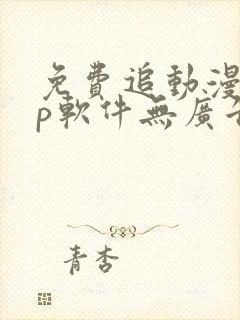 免費追動漫
p軟件無廣
青杏